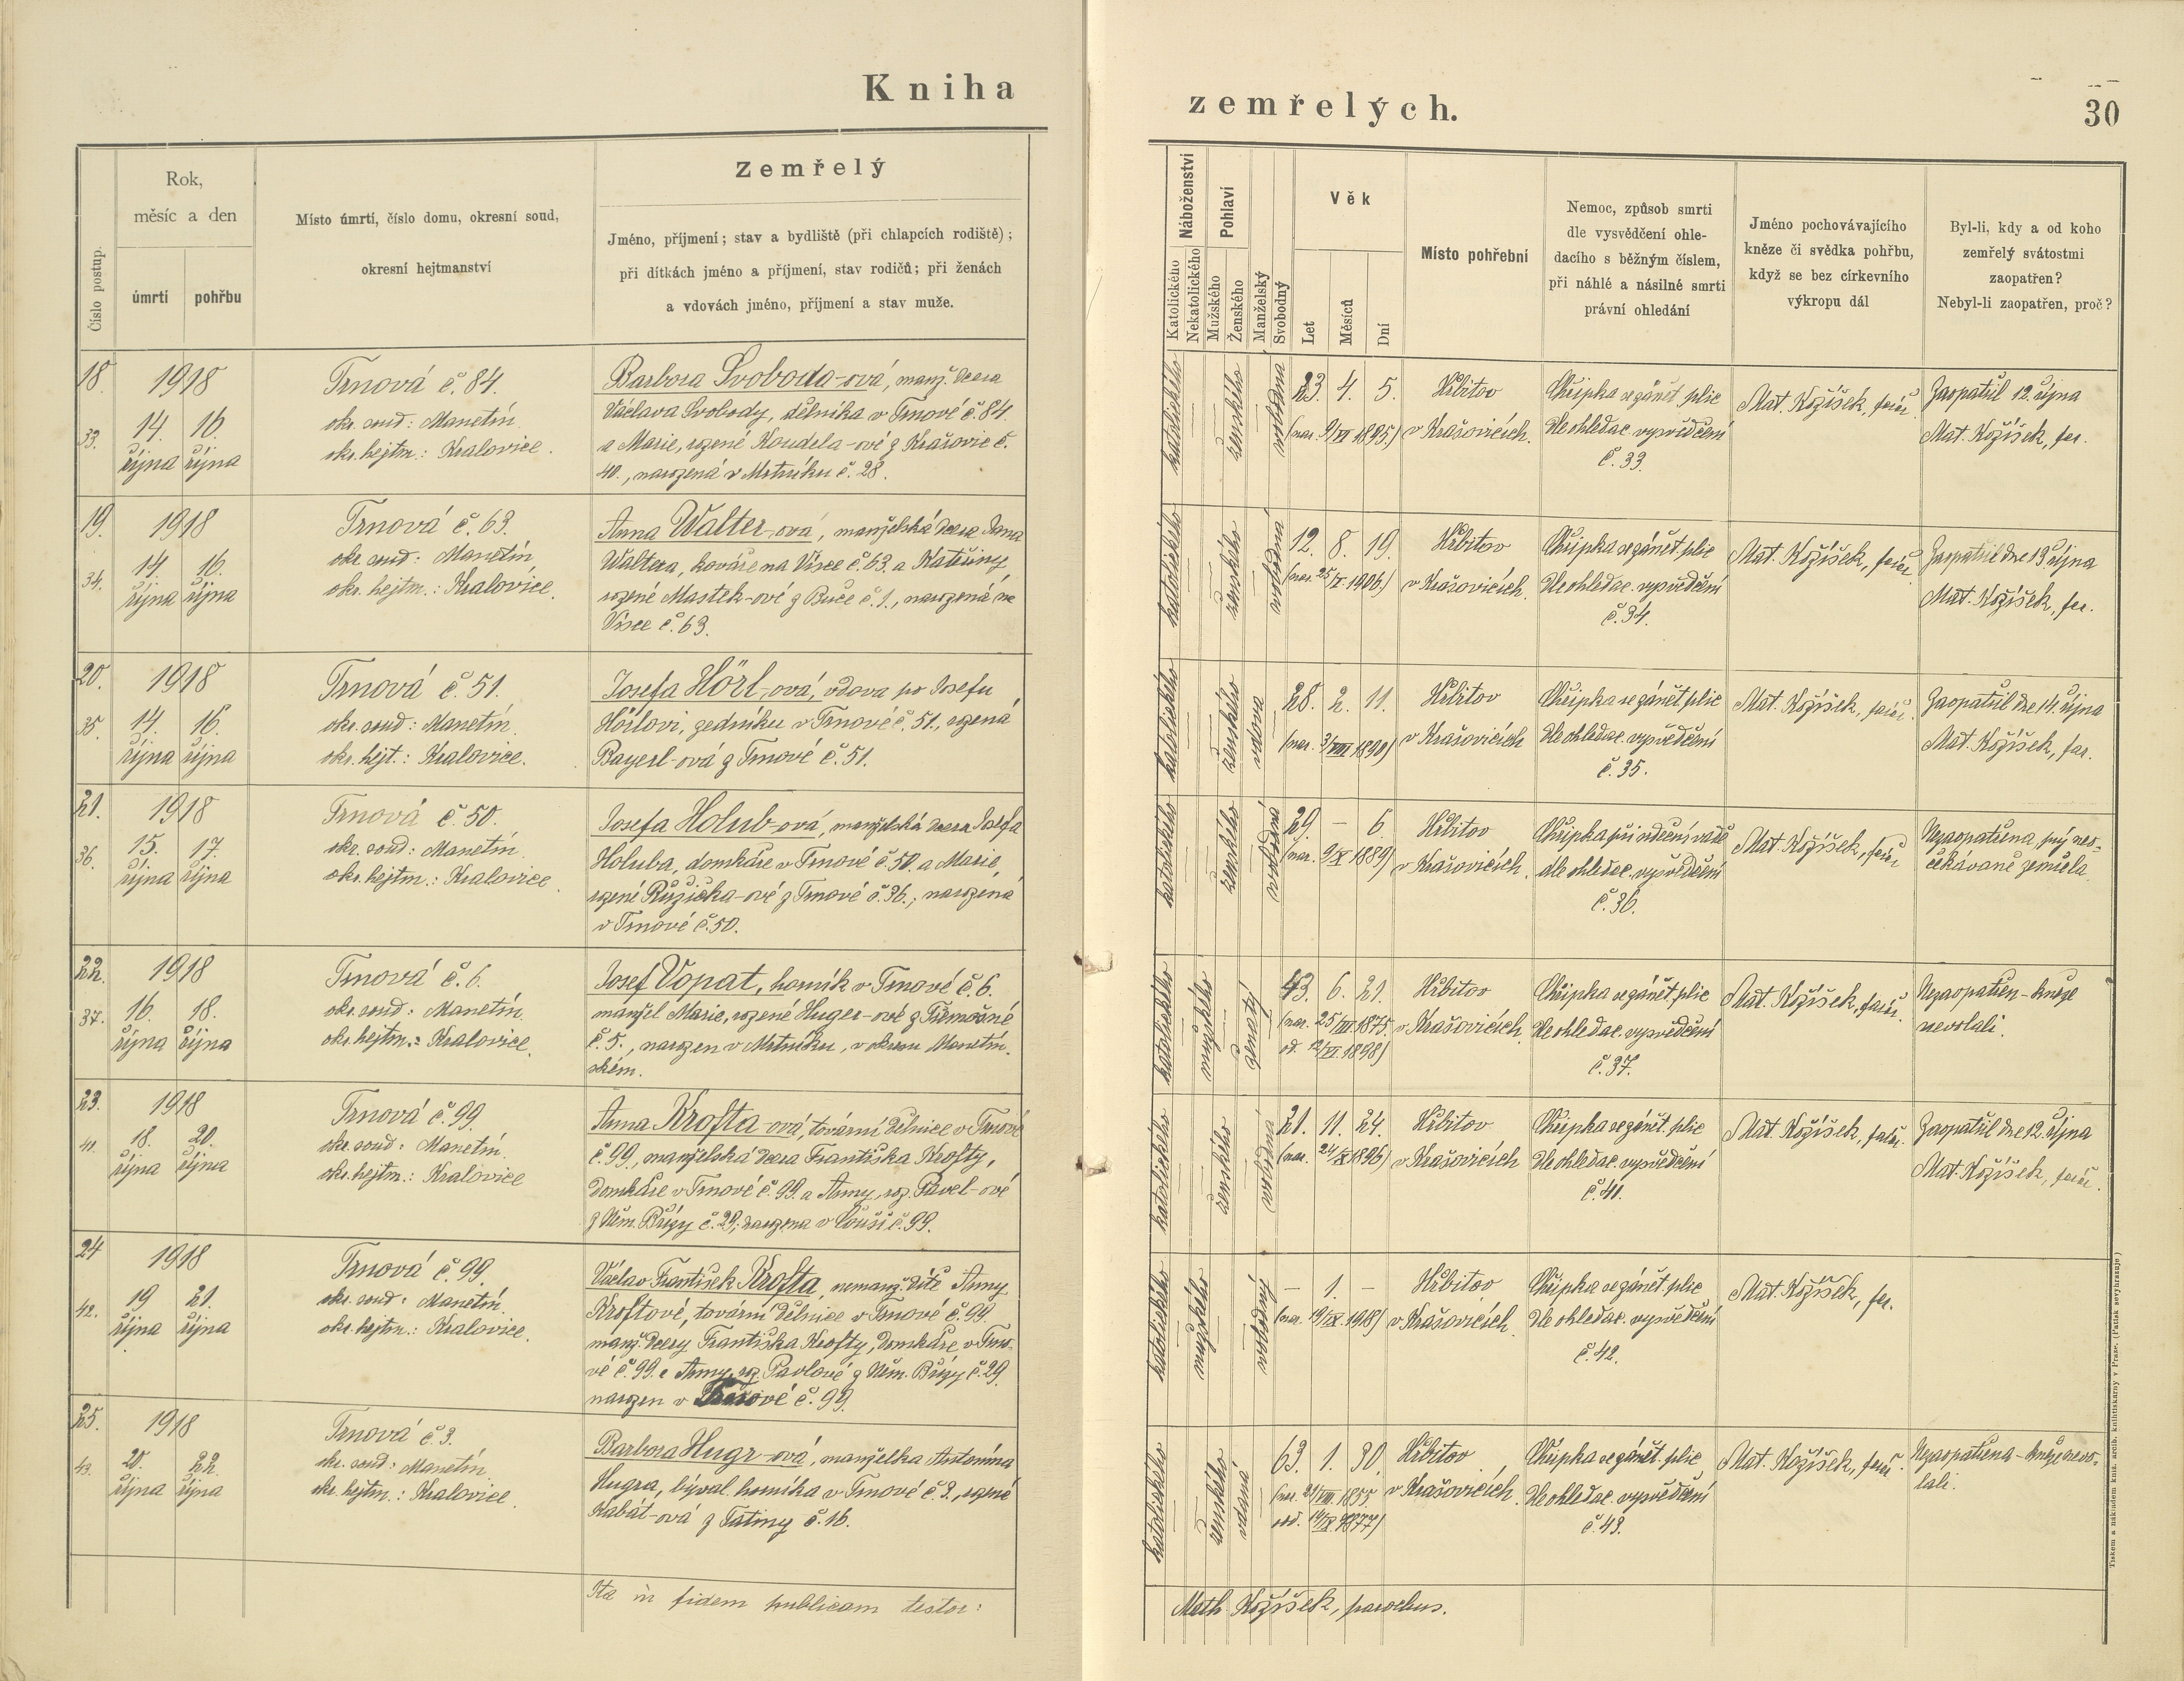 Kniha
zemřelých.
30
Číslo postup.
Rok,
měsíc a den
úmrtí
pohřbu
Místo úmrtí, číslo domu, okresní soud,
okresní hejtmanství
Zemřelý
Jméno, příjmení; stav a bydliště (při chlapcích rodiště);
při dítkách jméno a příjmení, stav rodičů; při ženách
a vdovách jméno, příjmení a stav muže.
Náboženství
Katolického
Nekatolického
Pohlaví
Mužského
Ženského
Manželský
Svobodný
Věk
Let
Měsíců
Dní
Místo pohřební
Nemoc, způsob smrti
dle vysvědčení ohle-
dacího s běžným číslem,
při náhlé a násilné smrti
právní ohledání
Jméno pochovávajícího
kněze či svědka pohřbu,
když se bez církevního
výkropu dál
Byl-li, kdy a od koho
zemřelý svátostmi
zaopatřen?
Nebyl-li zaopatřen, proč?
18.
33.
1918
14. 16.
října října
Trnová č. 84.
okr. soud: Manetín
okr. hejtm.: Kralovice.
Barbora Svoboda-ová, manž. dcera
Václava Svobody, dělníka v Trnové č. 84
a Marie, rozené Koudela-ové z Krašovic č.
40., narozená v Mrtníku č. 28.
katolického
ženského
svobodná
23. 4. 5.
(nar. 9/VI 1895)
Hřbitov
v Krašovicích.
Chřipka se zánět. plic
dle ohledac. vysvědčení
č. 33.
Mat. Kožíšek, farář
Zaopatřil 12. října
Mat. Kožíšek, far.
19.
34.
1918
14. 16.
října října
Trnová č. 63.
okr. soud: Manetín
okr. hejtm.: Kralovice.
Anna Walter-ová, manželská dcera Jana
Waltera, kováře na Vísce č. 63. a Kateřiny,
rozené Mastek-ové z Buče č. 1., narozená na
Vísce č. 63.
katolického
ženského
svobodná
12. 8. 19.
Hřbitov
v Krašovicích.
Chřipka se zánět. plic
dle ohledac. vysvědčení
č. 34.
Mat. Kožíšek, farář
Zaopatřil dne 13 října
Mat. Kožíšek, far.
20.
35.
1918
14. 16.
října října
Trnová č. 51.
okr. soud: Manetín.
okr. hejt.: Kralovice.
Josefa Hörl-ová, vdova po Josefu
Hörlovi, zedníku v Trnové č. 51., rozená
Bayerl-ová z Trnové č. 51.
katolického
ženského
vdova
28. 2. 11.
(nar. 3/VIII 1890)
Hřbitov
v Krašovicích
Chřipka se zánět. plic
dle ohledac. vysvědčení
č. 35.
Mat. Kožíšek, farář.
Zaopatřil dne 14. října
Mat. Kožíšek, far.
21.
36.
1918
15. 17.
října října
Trnová č. 50.
okr. soud: Manetín.
okr. hejtm.: Kralovice.
Josefa Holub-ová, manželská dcera Josefa
Holuba, domkáře v Trnové č. 50. a Marie,
rozené Růžička-ové z Trnové č. 36.; narozená
v Trnové č. 50.
katolického
ženského
svobodná
29. – 6.
(nar. 9/X 1889)
Hřbitov
v Krašovicích.
Chřipka při srdeční vadě
dle ohledac. vysvědčení
č. 36.
Mat. Kožíšek, farář
Nezaopatřena, prý neo-
čekávaně zemřela.
22.
37.
1918
16. 18.
října října
Trnová č. 6.
okr. soud: Manetín.
okr. hejtm.: Kralovice.
Josef Vopat, horník v Trnové č. 6.
manžel Marie, rozené Huger-ové z Třemošné
č. 5., narozen v Mrtníku, v okresu Manetín-
ském.
katolického
mužského
ženatý
43. 6. 21.
(nar. 25/III 1875
od. 12/VI 1898)
Hřbitov
v Krašovicích.
Chřipka se zánět. plic
dle ohledac. vysvědčení
č. 37.
Mat. Kožíšek, farář.
Nezaopatřen – kněze
nevolali.
23.
41.
1918
18. 20.
října října
Trnová č. 99.
okr. soud: Manetín.
okr. hejtm.: Kralovice
Anna Krofta-ová, tovární dělnice v Trnové
č. 99., manželská dcera Františka Krofty,
domkáře v Trnové č. 99. a Anny, roz. Pavel-ové
z Něm. Břízy č. 29; narozena v č. 99.
katolického
ženského
svobodná
21. 11. 24.
Hřbitov
v Krašovicích
Chřipka se zánět. plic
dle ohledac. vysvědčení
č. 41.
Mat. Kožíšek, farář.
Zaopatřil dne 12. října
Mat. Kožíšek, farář.
24
42.
1918
19 21.
října října
Trnová č. 99.
okr. soud: Manetín.
okr. hejtm.: Kralovice.
Václav František Krofta, nemanž. dítě Anny
Kroftové, tovární dělnice v Trnové č. 99.
manž. dcery Františka Krofty, domkáře v Trno-
vé č. 99. a Anny, roz. Pavlové z Něm. Břízy č. 29.
narozen v Trnové č. 99.
katolického
mužského
svobodný
– 1. –
(nar. 19/IX. 1918)
Hřbitov
v Krašovicích.
Chřipka se zánět. plic
dle ohledac. vysvědčení
č. 42.
Mat. Kožíšek, far.
25.
43.
1918
20. 22.
října října
Trnová č. 3.
okr. soud: Manetín
okr. hejtm.: Kralovice.
Barbora Hugr-ová, manželka Antonína
Hugra, býval. horníka v Trnové č. 3., rozená
Kabát-ová z Tatiny č. 16.
katolického
ženského
vdaná
63. 1. 30.
(nar. 21/VIII. 1855.
odd. 1877)
Hřbitov
v Krašovicích.
Chřipka se zánět. plic
dle ohledac. vysvědčení
č. 43.
Mat. Kožíšek, farář.
Nezaopatřena – kněze nevo-
lali.
Ita in fidem publicam testor:
Math. Kožíšek, parochus.
Tiskem a nákladem kníž. arcib. knihtiskárny v Praze.